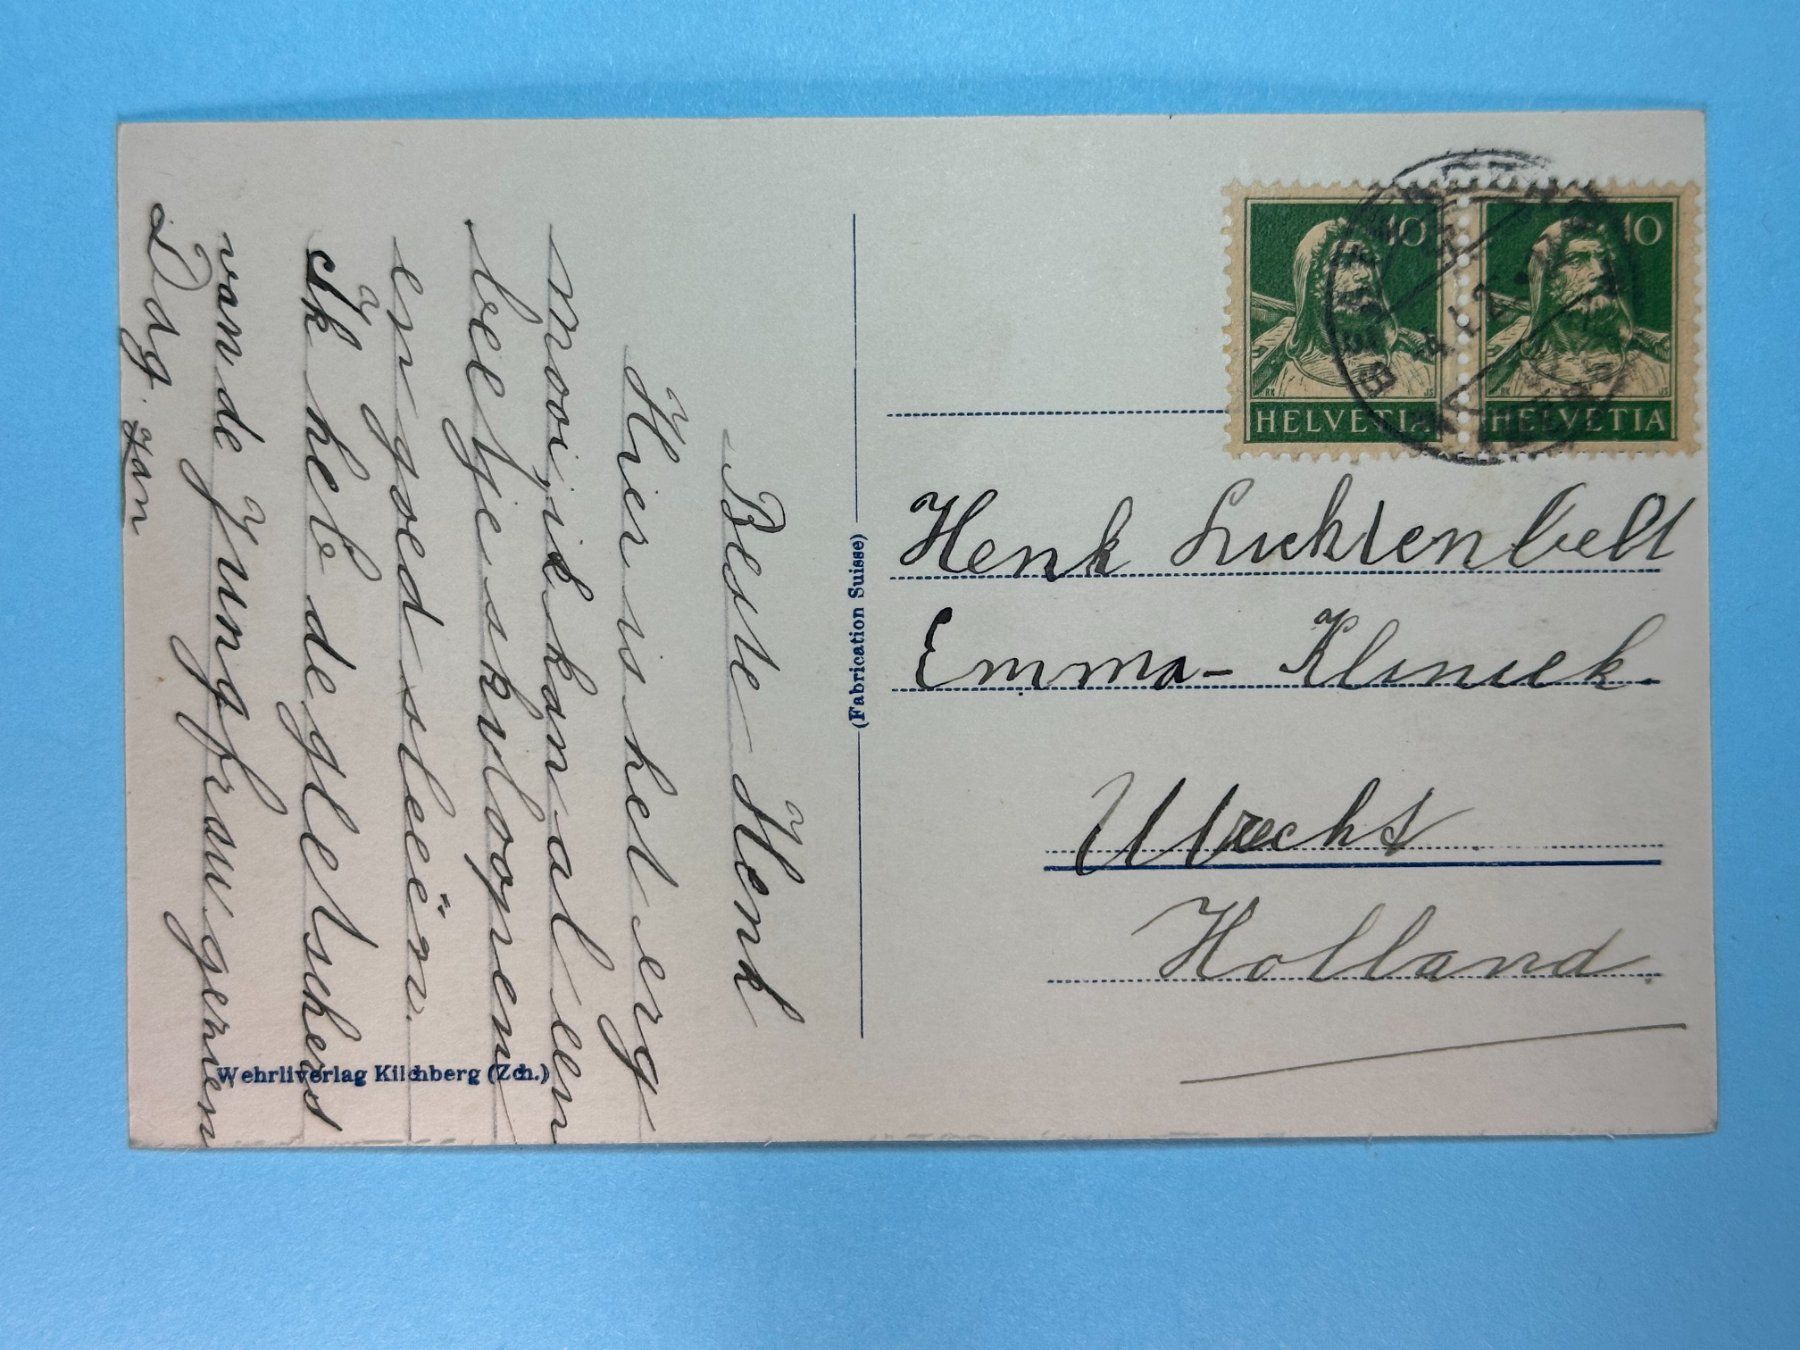 Beste Henk
Hier is het erg
mooi, ik kan al een
beetje skiloopen
en goed sleeën.
Ik heb de gletschers
van de Jungfrau gezien
Dag. Jan
(Fabrication Suisse)
Wehrliverlag Kilchberg (Zch.)
10 10
HELVETIA HELVETIA
Henk Lichtenbelt
Emma-Kliniek.
Utrecht
Holland